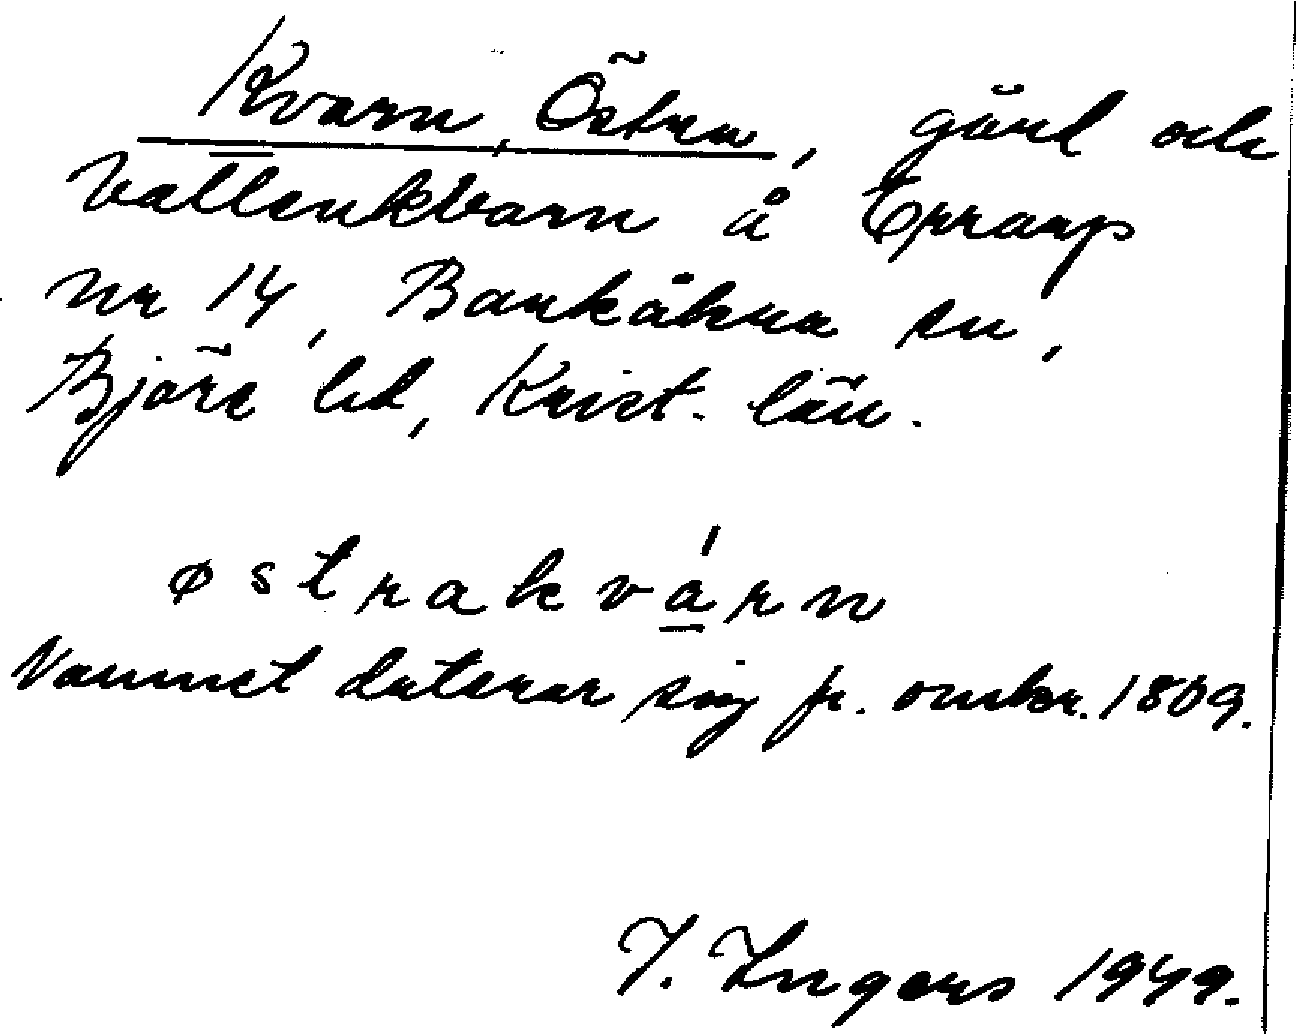 Kvarn, Östra, gård och
vattenkvarn å Errarp
nr 14, Barkåkra sn,
Bjäre hd, Krist. län.
østrakvárn
Namnet daterar sig fr. omkr. 1809.
I. Ingers 1949.